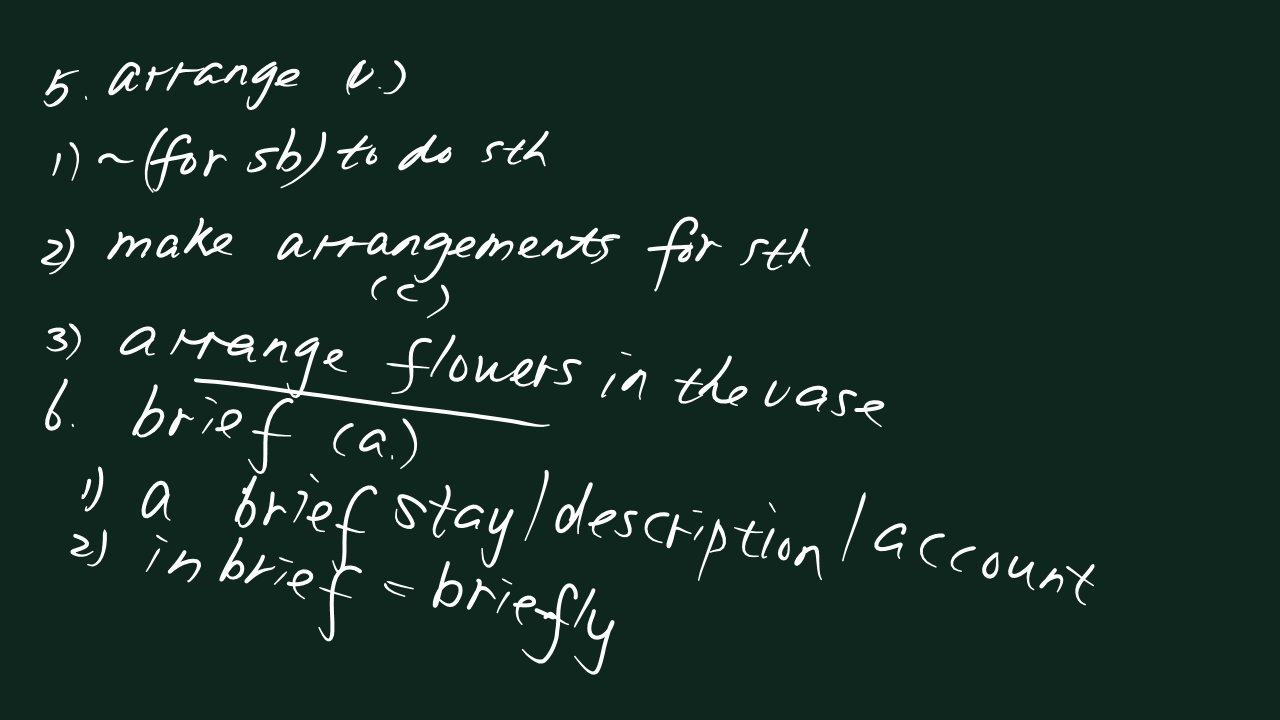 5. arrange (v.)
1) ~(for sb) to do sth
2) make arrangements for sth
(c)
3) arrange flowers in the vase
6. brief (a.)
1) a brief stay/description/account
2) in brief = briefly